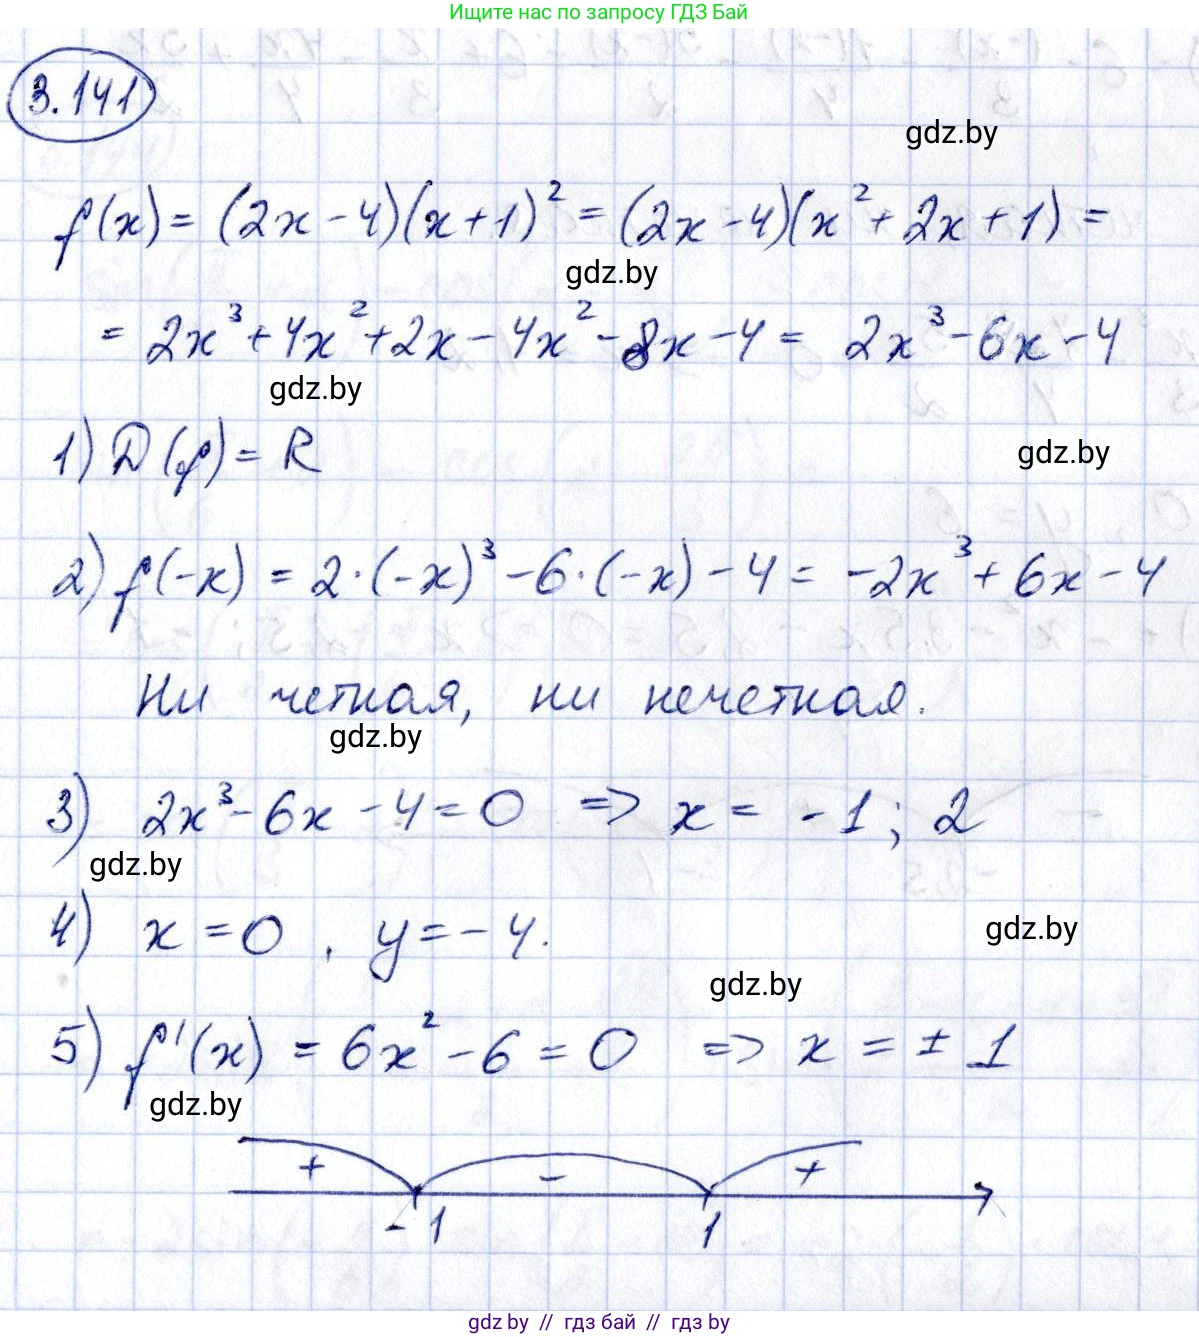 Ищите нас по запросу ГДЗ Бай
3.141
gdz.by
f(x) = (2x - 4)(x + 1)² = (2x - 4)(x² + 2x + 1) =
gdz.by
= 2x³ + 4x² + 2x - 4x² - 8x - 4 = 2x³ - 6x - 4
gdz.by
1) D(f) = R
gdz.by
2) f(-x) = 2·(-x)³ - 6·(-x) - 4 = -2x³ + 6x - 4
Ни четная, ни нечетная.
gdz.by
3) 2x³ - 6x - 4 = 0 => x = -1; 2
gdz.by
4) x = 0, y = -4.
gdz.by
gdz.by
5) f'(x) = 6x² - 6 = 0 => x = ± 1
gdz.by
+ - +
-1 1
gdz.by // гдз бай // gdz.by